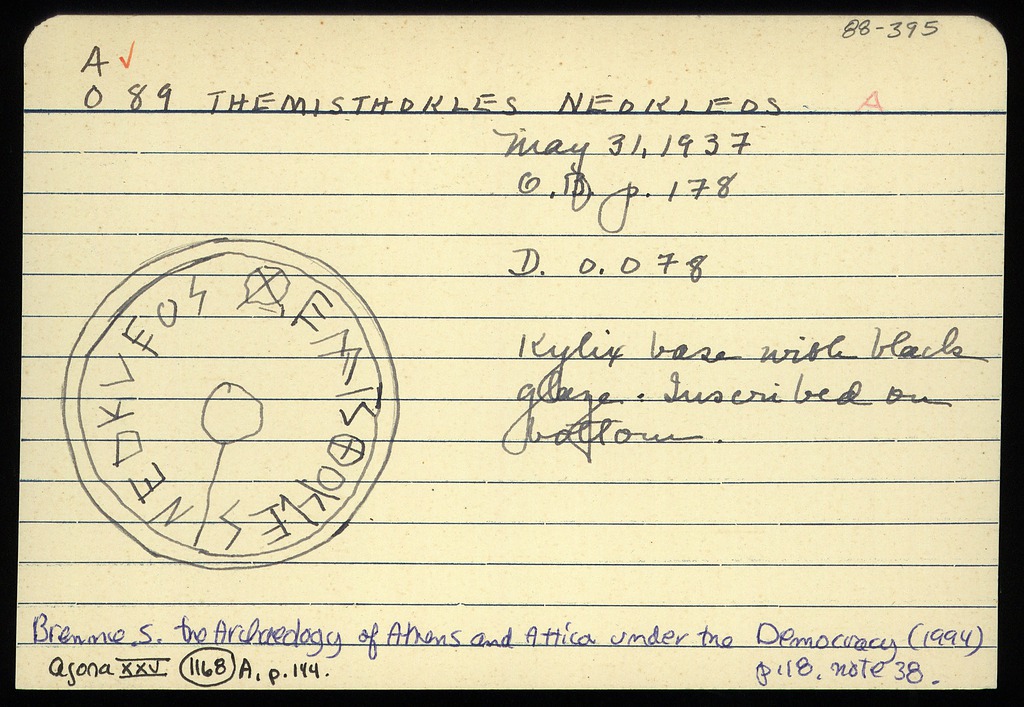 88-395
A ✓
O 89 THEMISTHOKLES NEOKLEOS. A
May 31, 1937
O.D. p. 178
D. 0.078
Kylix base with black
glaze. Inscribed on
bottom.
⊗ΕΜΙΣ⊗ΟΚLΕΣ ΝΕΟΚLΕΟΣ
Brenne, S. the Archaeology of Athens and Attica under the Democracy (1994)
p.18, note 38.
Agora XXV 1168 A, p.144.